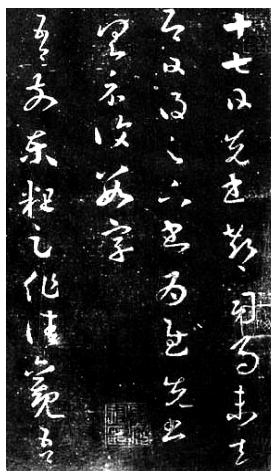 十七日先書郗司馬未去
即日得足下書為慰先書以
具示復數字
吾前東粗足作佳觀吾